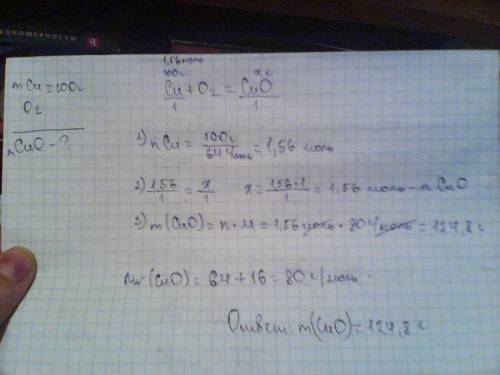 кономерности
1,56 моль
100г    x г
Cu + O₂ = CuO
1    1
mCu = 100г
O₂
mCuO - ?
1) nCu = 100г / 64 г/моль = 1,56 моль
2) 1,56/1 = x/1    x = 1,56·1/1 = 1,56 моль - n CuO
3) m(CuO) = n · M = 1,56 моль · 80 г/моль = 124,8 г
Mr (CuO) = 64 + 16 = 80 г/моль.
Ответ: m(CuO) = 124,8 г